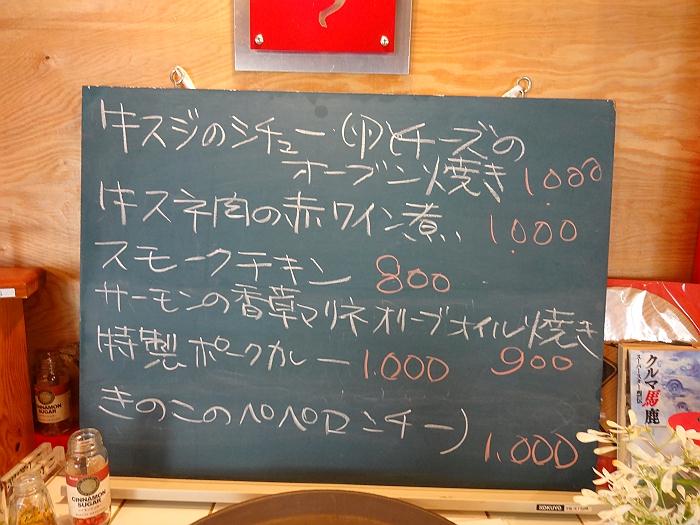 牛スジのシチュー(卵とチーズの
オーブン焼き 1.000
牛スネ肉の赤ワイン煮 1.000
スモークチキン 800
サーモンの香草マリネオリーブオイル焼き
900
特製ポークカレー 1.000
きのこのペペロンチーノ
1.000
CINNAMON
SUGAR
CINNAMON
SUGAR
クルマ馬鹿
KOKUYO